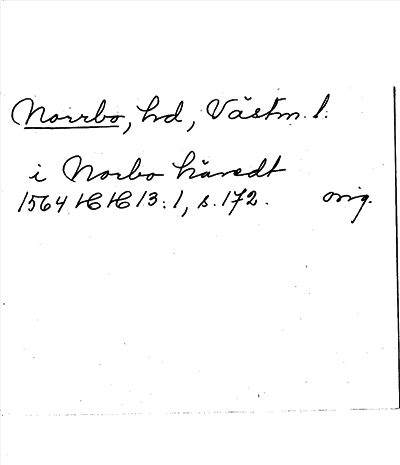 Norrbo, hd, Västm. l.
i Norbo häredt
1564 HH 13:1, s. 172. orig.